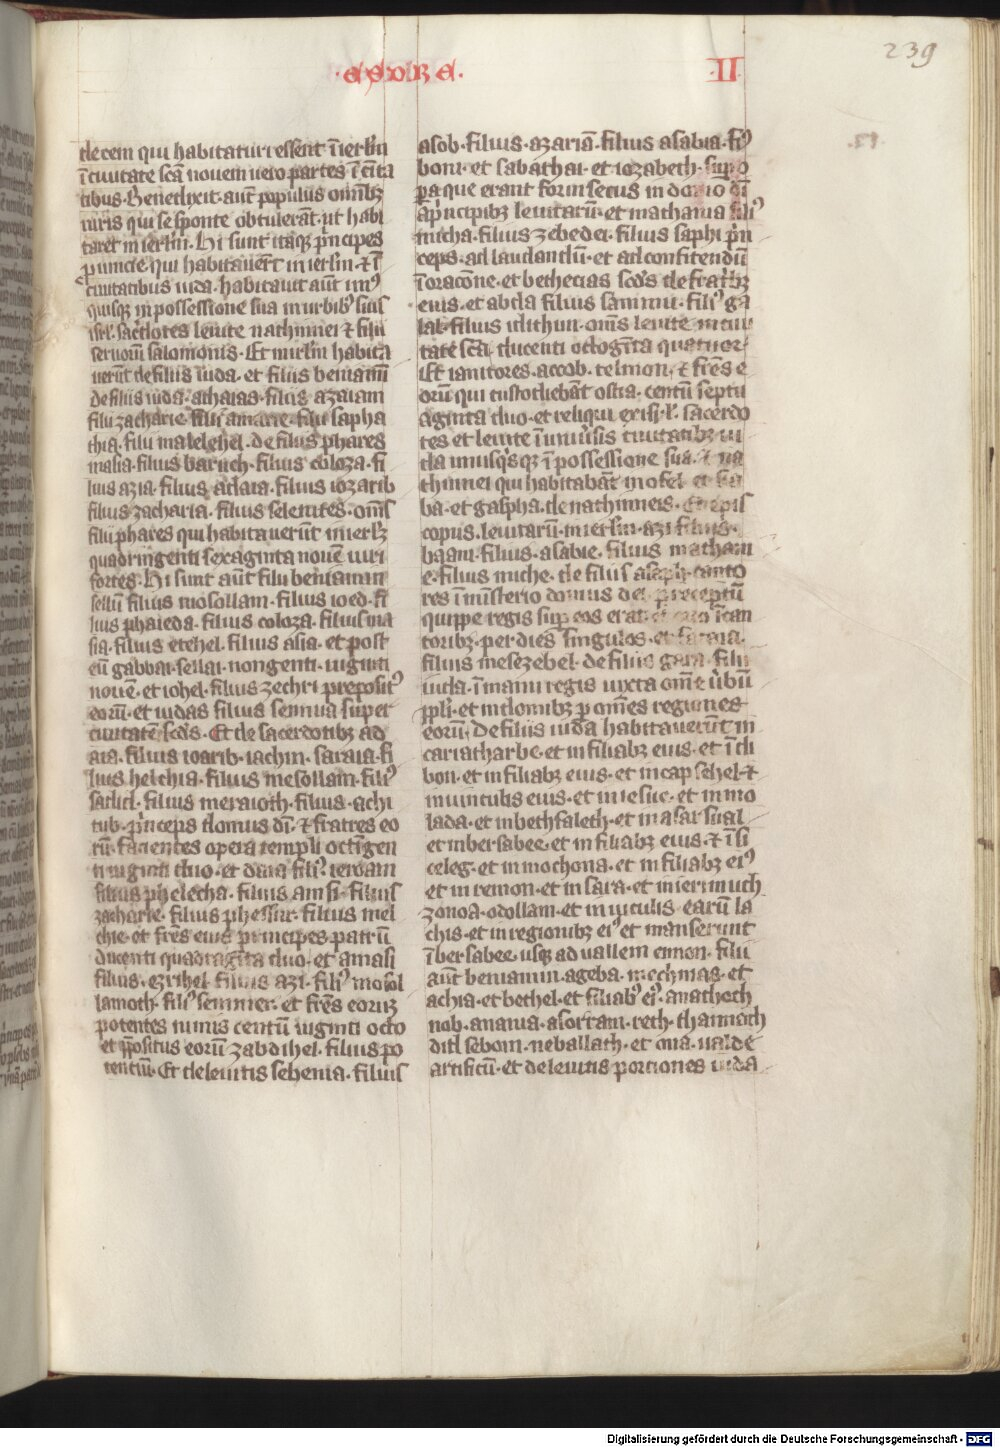 ·esdre·
II
239
decem qui habitaturi essent ī ierl̄m
ī ciuitate sc̄a nouem uero partes ī ciuita
tibus· Benedixit aūt populus omībꝫ
uiris qui se sponte obtulerāt ut habi
tarēt in ierl̄m· Hi sunt itaqꝫ p̄ncipes
ꝓuincie qui habitauer̄t in ierl̄m ⁊ ī
ciuitatibus iuda· habitauit aūt unꝰ
quisqꝫ in possessione sua in urbibꝰ suis
isrl̄· sac̄dotes leuite nathinnei ⁊ filii
seruorū salomonis· Et in ierl̄m habita
uerūt de filiis iuda· et filiis beniamī
de filiis iuda· athaias· filius azaiam
filii zacharie filii amarie· filii sapha
thia· filii malelehel· de filiis phares
masia· filius baruch· filius coloza· fi
lius azia· filius adaia· filius iozarib
filius zacharia· filius selenites· om̄s
filii phares qui habitauerūt in ierl̄m
quadringenti sexaginta nouē uiri
fortes· Hi sunt aūt filii beniamin
sellū filius mosollam· filius ioed· fi
lius phaieda· filius coloza· filius ma
sia· filius etehel· filius asia· et post
eū gabbai· sellai· nongenti· uiginti
nouē· et iohel· filius zechri preposit᾿
eorū· et iudas filius sennua super
ciuitatē sc̄ds· Et de sacerdotibꝫ ad
aia· filius ioarib· iachin· saraia· fi
lius helchia· filius mesollam· filiꝰ
sadid· filius meraioth· filius· achi
tub· p̄nceps domus dī· ⁊ fratres eo
rū· facientes opera templi octīgen
ti uiginti duo· et adaia filiꝰ ieroam
filius phelecha· filius amsi· filius
zacharie· filius phessur· filius mel
chie· et fr̄es eius principes patrū
ducenti quadragīta duo· et amasi
filius· ezrihel· filius azi· filiꝰ mosol
lamoth· filiꝰ semmer· et fr̄es eorum
potentes nimis centū uiginti octo
et p̄positus eorū zabdihel· filius po
tentiū· Et de leuitis sebenia· filius
asob· filius· azariā· filius asabia· fiꝰ
boni· et sabathai· et iozabeth· sup o
pera que erant forinsecus in domo dī
a p̄ncipibꝫ leuitarū· et mathania filiꝰ
micha· filius zebedei· filius saphi p̄n
ceps· ad laudandū· et ad confitendū
ī oracōne· et bethecias sc̄ds de fratribꝫ
eius· et abda filius sammu· filiꝰ ga
lal· filius idithun· om̄s leuite in ciui
tate sc̄a ducenti octogīta quatuor·
Et ianitores· accob· telmon· ⁊ fr̄es e
orū qui custodiebāt ostia· centū septu
aginta duo· et reliqui ex isrl̄· sacerdo
tes et leuite ī uniūsis ciuitatibꝫ iu
da unusqͥsqꝫ ī possessione sua· ⁊ na
thinnei qui habitabāt in ofel· et sia
ba· et gaspha· de nathinneis· Et epis
copus· leuitarū· in ierl̄m· azi filius·
bāani· filius· asabie· filius mathani
e· filius miche· de filiis asaph· canto
res ī misterio domus dei· preceptū
quippe regis sup eos erat· et ordo ī can
toribꝫ· per dies singulos· et fataia·
filius mesezebel· de filiis gara· filii
iuda· ī manu regis iuxta om̄e ūbū
pp̄li· et in domibꝫ p om̄es regiones
eorū· De filiis iuda habitauerūt in
cariatharbe· et in filiabꝫ eius· et ī di
bon· et in filiabꝫ eius· et in capsehel· ⁊
in uiculis eius· et in iesue· et in mo
lada· et in bethfaleth· et in asarsual
et in bersabee· et in filiabꝫ eius· ⁊ ī si
celeg· et in mochona· et in filiabꝫ eiꝰ
et in remon· et in sara· et in ierimuth
zonoa· odollam· et in uiculis earū la
chis· et in regionibꝫ eiꝰ et manserunt
ī bersabee· usqꝫ ad uallem ennon· filii
aūt beniamin· ageba· mechmas· et
achia· et bethel· et filiabꝰ eiꝰ· anathoth
nob· anania· asor ram· reth· thannoth
did· seboin· neballath· et ona· ualde
artificū· et de leuitis portiones iuda
Digitalisierung gefördert durch die Deutsche Forschungsgemeinschaft - DFG